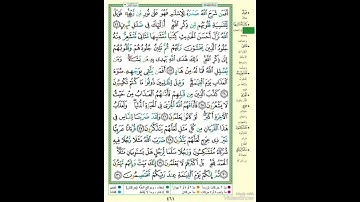 أَفَمَن شَرَحَ اللَّهُ صَدْرَهُ لِلْإِسْلَامِ فَهُوَ عَلَىٰ نُورٍ مِّن رَّبِّهِ فَوَيْلٌ
لِّلْقَاسِيَةِ قُلُوبُهُم مِّن ذِكْرِ اللَّهِ أُولَٰئِكَ فِي ضَلَالٍ مُّبِينٍ ٢٢
اللَّهُ نَزَّلَ أَحْسَنَ الْحَدِيثِ كِتَابًا مُّتَشَابِهًا مَّثَانِيَ تَقْشَعِرُّ مِنْهُ
جُلُودُ الَّذِينَ يَخْشَوْنَ رَبَّهُمْ ثُمَّ تَلِينُ جُلُودُهُمْ وَقُلُوبُهُمْ
إِلَىٰ ذِكْرِ اللَّهِ ذَٰلِكَ هُدَى اللَّهِ يَهْدِي بِهِ مَن يَشَاءُ وَمَن
يُضْلِلِ اللَّهُ فَمَا لَهُ مِنْ هَادٍ ٢٣ أَفَمَن يَتَّقِي بِوَجْهِهِ سُوءَ
الْعَذَابِ يَوْمَ الْقِيَامَةِ وَقِيلَ لِلظَّالِمِينَ ذُوقُوا مَا كُنتُمْ تَكْسِبُونَ
٢٤ كَذَّبَ الَّذِينَ مِن قَبْلِهِمْ فَأَتَاهُمُ الْعَذَابُ مِنْ حَيْثُ
لَا يَشْعُرُونَ ٢٥ فَأَذَاقَهُمُ اللَّهُ الْخِزْيَ فِي الْحَيَاةِ الدُّنْيَا وَلَعَذَابُ
الْآخِرَةِ أَكْبَرُ لَوْ كَانُوا يَعْلَمُونَ ٢٦ وَلَقَدْ ضَرَبْنَا لِلنَّاسِ فِي
هَٰذَا الْقُرْآنِ مِن كُلِّ مَثَلٍ لَّعَلَّهُمْ يَتَذَكَّرُونَ ٢٧ قُرْآنًا عَرَبِيًّا
غَيْرَ ذِي عِوَجٍ لَّعَلَّهُمْ يَتَّقُونَ ٢٨ ضَرَبَ اللَّهُ مَثَلًا رَّجُلًا
فِيهِ شُرَكَاءُ مُتَشَاكِسُونَ وَرَجُلًا سَلَمًا لِّرَجُلٍ هَلْ يَسْتَوِيَانِ مَثَلًا
الْحَمْدُ لِلَّهِ بَلْ أَكْثَرُهُمْ لَا يَعْلَمُونَ ٢٩ إِنَّكَ مَيِّتٌ وَإِنَّهُم مَّيِّتُونَ
٣٠ ثُمَّ إِنَّكُمْ يَوْمَ الْقِيَامَةِ عِندَ رَبِّكُمْ تَخْتَصِمُونَ ٣١
٤٦١